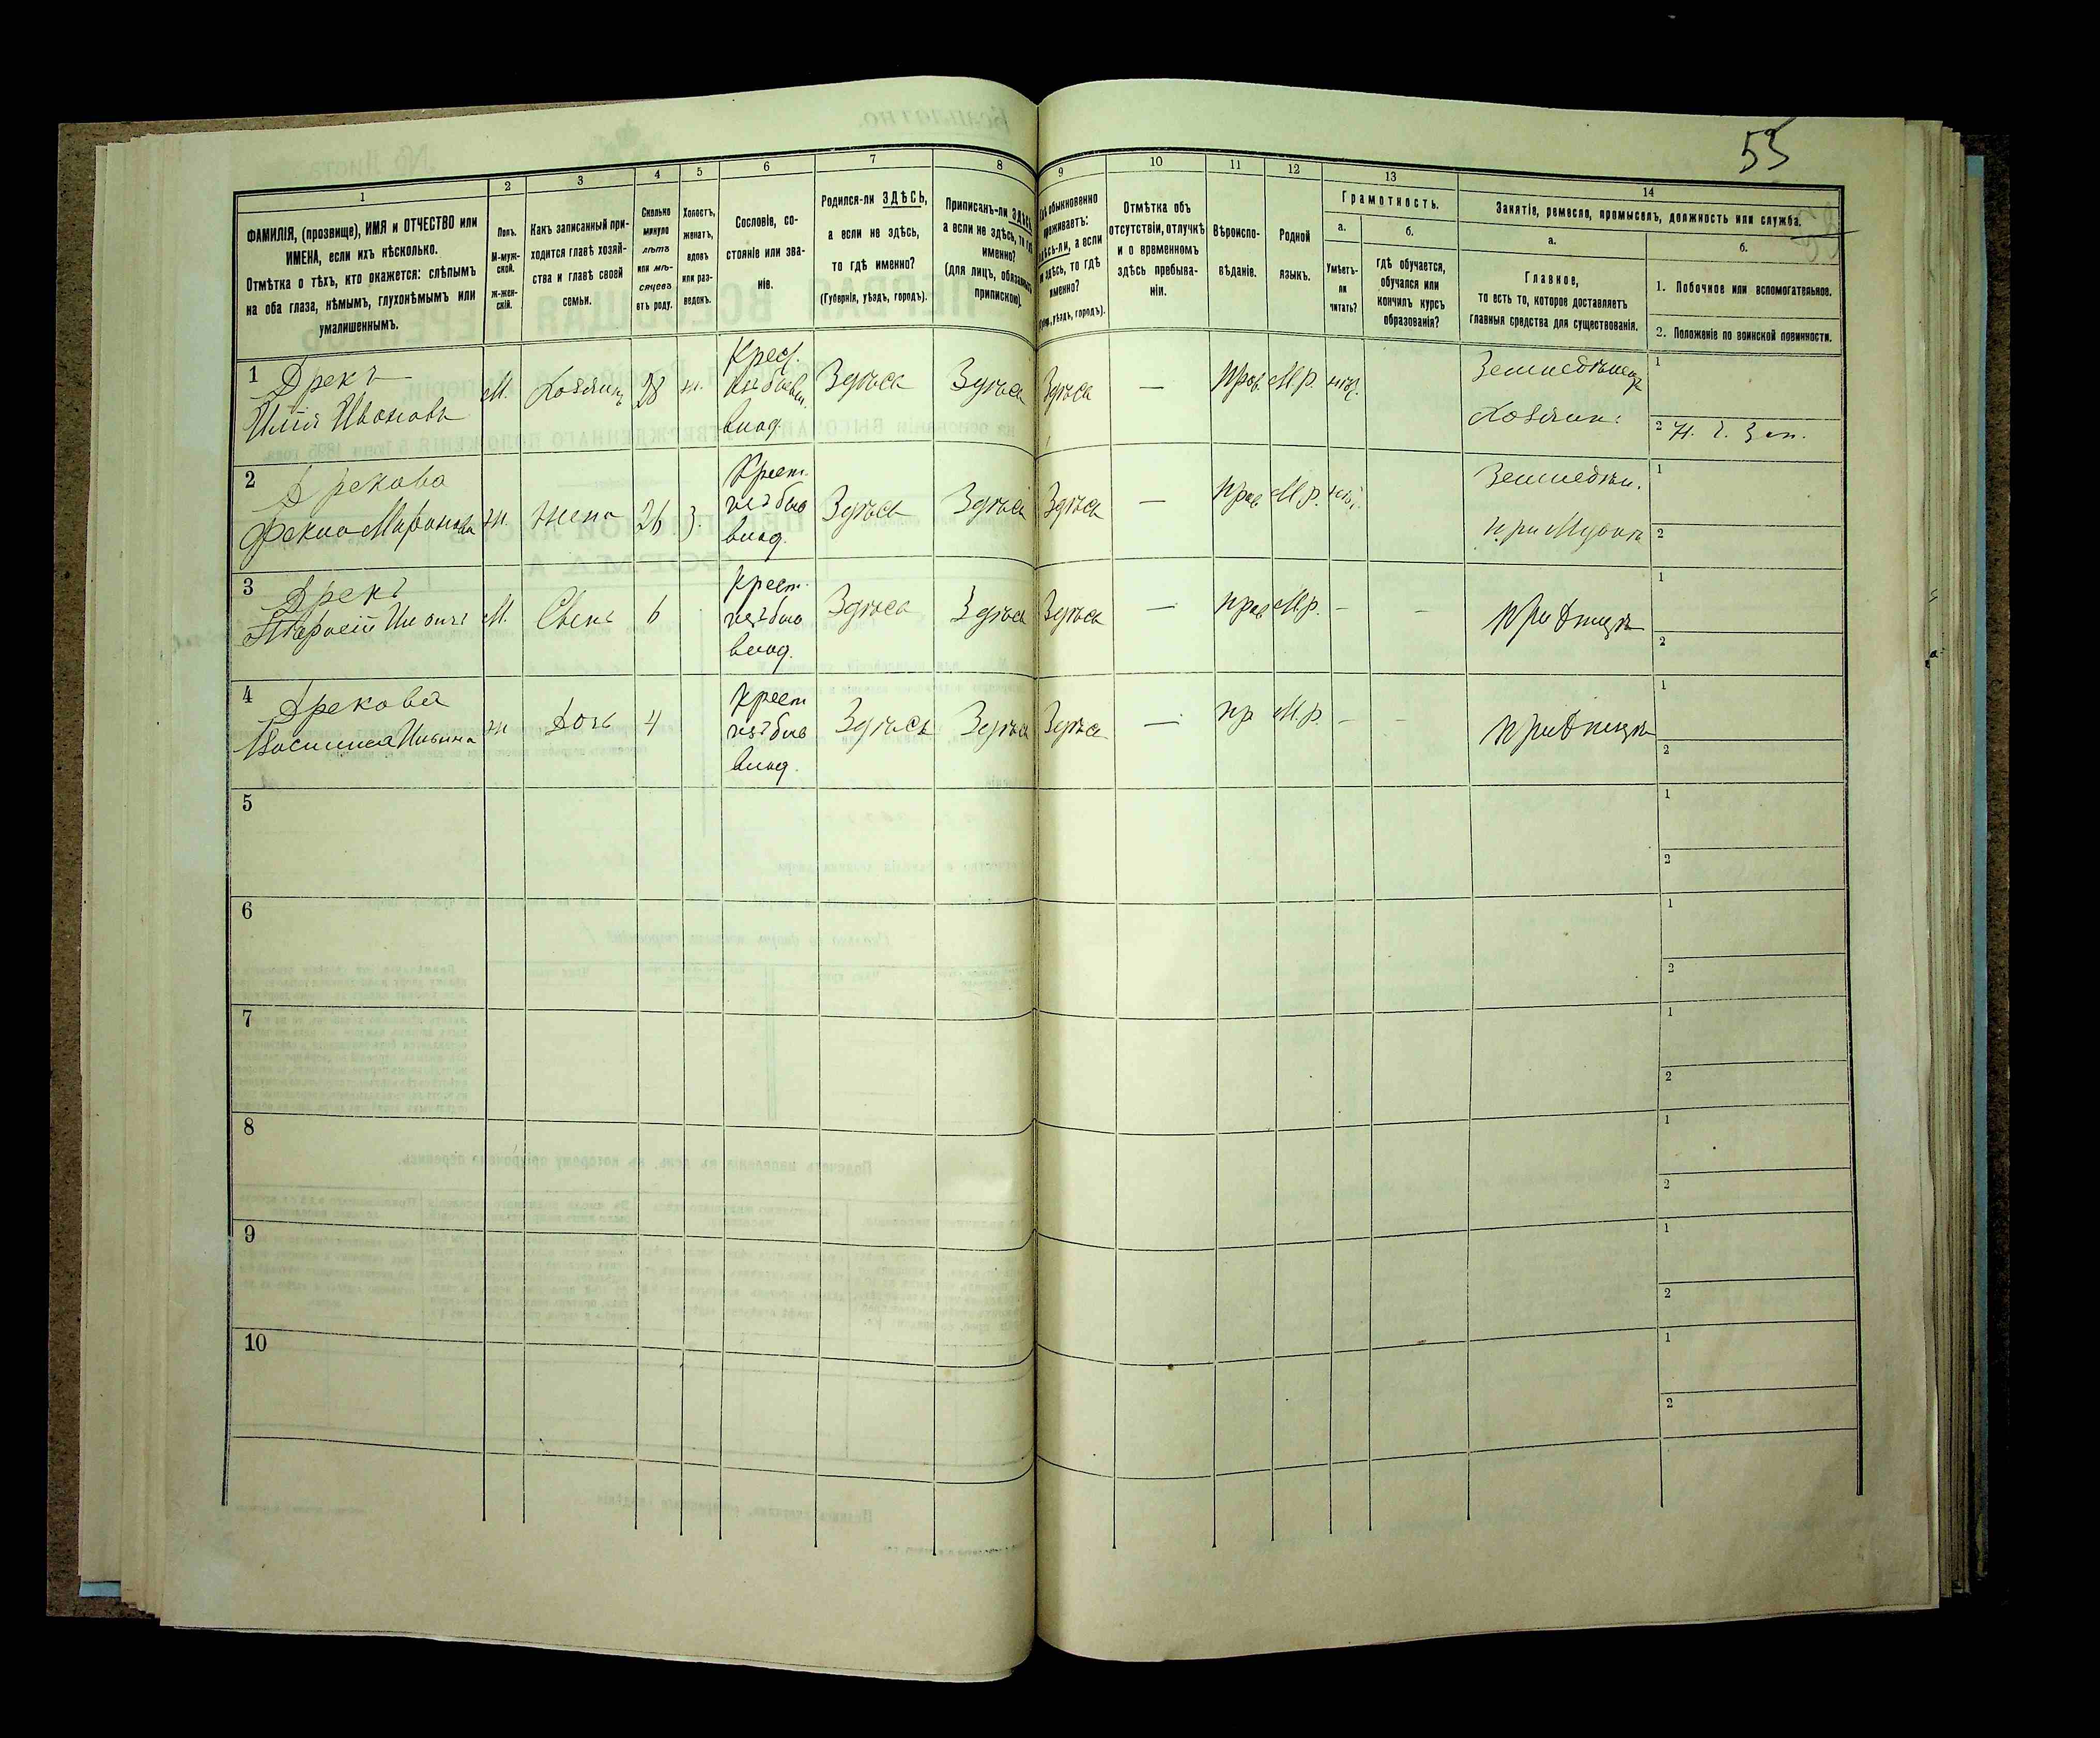 55
1
2
3
4
5
6
7
8
9
10
11
12
13
14
ФАМИЛІЯ, (прозвище), ИМЯ и ОТЧЕСТВО или
ИМЕНА, если ихъ нѣсколько.
Отмѣтка о тѣхъ, кто окажется: слѣпымъ
на оба глаза, нѣмымъ, глухонѣмымъ или
умалишеннымъ.
Полъ.
М-муж-
ской.
ж-жен-
скій.
Какъ записанный при-
ходится главѣ хозяй-
ства и главѣ своей
семьи.
Сколько
минуло
лѣтъ
или мѣ-
сяцевъ
отъ роду.
Холостъ,
женатъ,
вдовъ
или раз-
веденъ.
Сословіе, со-
стояніе или зва-
ніе.
Родился-ли ЗДѢСЬ,
а если не здѣсь,
то гдѣ именно?
(Губернія, уѣздъ, городъ).
Приписанъ-ли ЗДѢСЬ,
а если не здѣсь, то гдѣ
именно?
(для лицъ, обязанныхъ
припискою).
обыкновенно
проживаетъ:
а если
не здѣсь, то гдѣ
именно?
уѣздъ, городъ).
Отмѣтка объ
отсутствіи, отлучкѣ
и о временномъ
здѣсь пребыва-
ніи.
Вѣроиспо-
вѣданіе.
Родной
языкъ.
Грамотность.
а.
б.
Умѣетъ-
ли
читать?
гдѣ обучается,
обучался или
кончилъ курсъ
образованія?
Занятіе, ремесло, промыселъ, должность или служба.
а.
б.
Главное,
то есть то, которое доставляетъ
главныя средства для существованія.
1. Побочное или вспомогательное.
2. Положеніе по воинской повинности.
1 Дрекъ
Илія Ивановъ
М.
Хозяинъ
28
ж.
Крест.
влад.
Здѣсь
Здѣсь
Здѣсь
—
Прав.
М.р.
нѣт.
Земледѣлецъ
Хозяин.
1
2
2 Дрекова
Фекла
ж.
жена
26
З.
Крест.
изъ быв
влад.
Здѣсь
Здѣсь
Здѣсь
—
Прав
М.р.
нѣт.
Земледѣл.
при Мужѣ
1
2
3 Дрекъ
М.
Сынъ
6
Крест.
изъ быв
влад.
Здѣсь
Здѣсь
Здѣсь
—
прав
М.р.
—
—
при Отцѣ
1
2
4 Дрекова
Василиса Ильина
ж
Дочь
4
Крест
изъ быв
влад.
Здѣсь
Здѣсь
Здѣсь
—
пр
М.р.
—
—
при Отцѣ
1
2
5
1
2
6
1
2
7
1
2
8
1
2
9
1
2
10
1
2